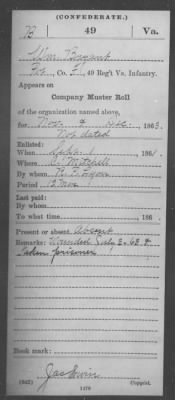 (CONFEDERATE.)
B 49 Va.
Wm Bryant
Co. 49 Reg't Va. Infantry.
Appears on
Company Muster Roll
of the organization named above,
for Nov & Dec, 1863.
Not dated
Enlisted:
When 1, 186
Where C. Mitchell
By whom
Period
Last paid:
By whom
To what time , 186 .
Present or absent, Absent
Remarks: Wounded July 3-63 &
taken prisoner
Book mark:
(642) 1278 Copyist.